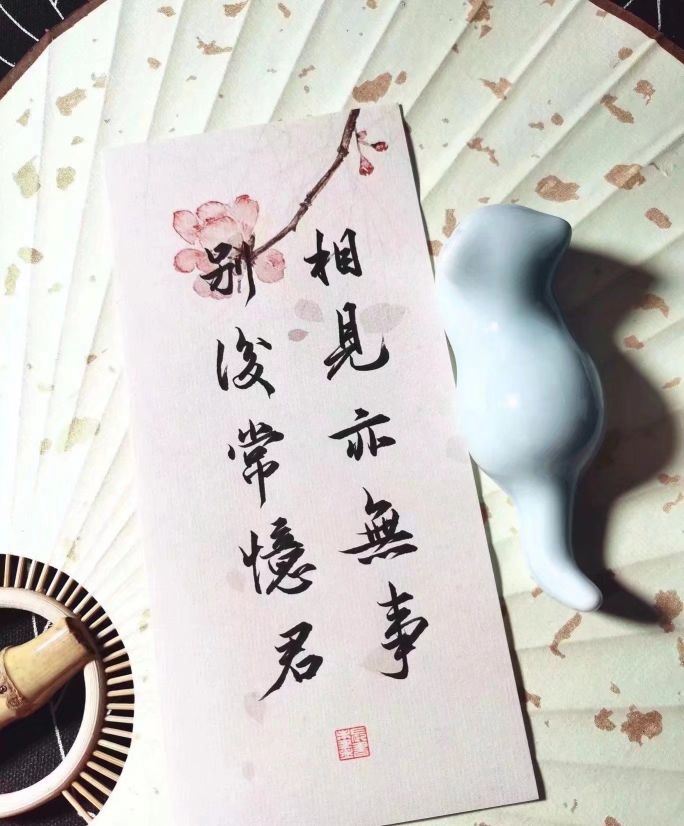 相見亦無事
別後常憶君